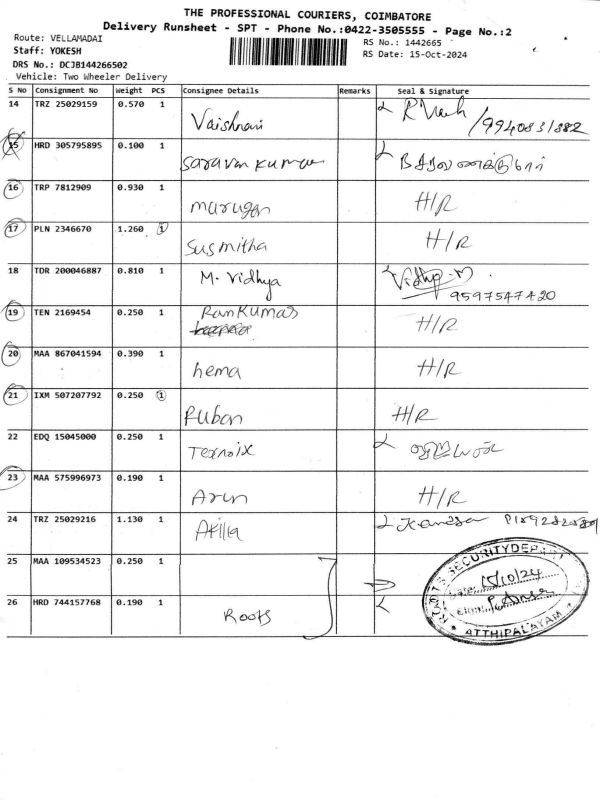 THE PROFESSIONAL COURIERS, COIMBATORE
Delivery Runsheet - SPT - Phone No.:0422-3505555 - Page No.:2
Route: VELLAMADAI
RS No.: 1442665
Staff: YOKESH
RS Date: 15-Oct-2024
DRS No.: DCJB144266502
Vehicle: Two Wheeler Delivery
S No Consignment No Weight PCS Consignee Details Remarks Seal & Signature
14 TRZ 25029159 0.570 1 Vaishnavi
15 HRD 305795895 0.100 1 Saravan kumar
16 TRP 7812909 0.930 1 murugan H/R
17 PLN 2346670 1.260 1 Susmitha H/R
18 TDR 200046887 0.810 1 M. Vidhya Vidhya. M
9597547420
19 TEN 2169454 0.250 1 RamKumar H/R
20 MAA 867041594 0.390 1 hema H/R
21 IXM 507207792 0.250 1 Ruban H/R
22 EDQ 15045000 0.250 1 Texnoix
23 MAA 575996973 0.190 1 Arun H/R
24 TRZ 25029216 1.130 1 Akilla
25 MAA 109534523 0.250 1
26 HRD 744157768 0.190 1 Roots
ROOTS SECURITY DEPART
Date: 15/10/24
Sign:
ATTHIPALAYAM